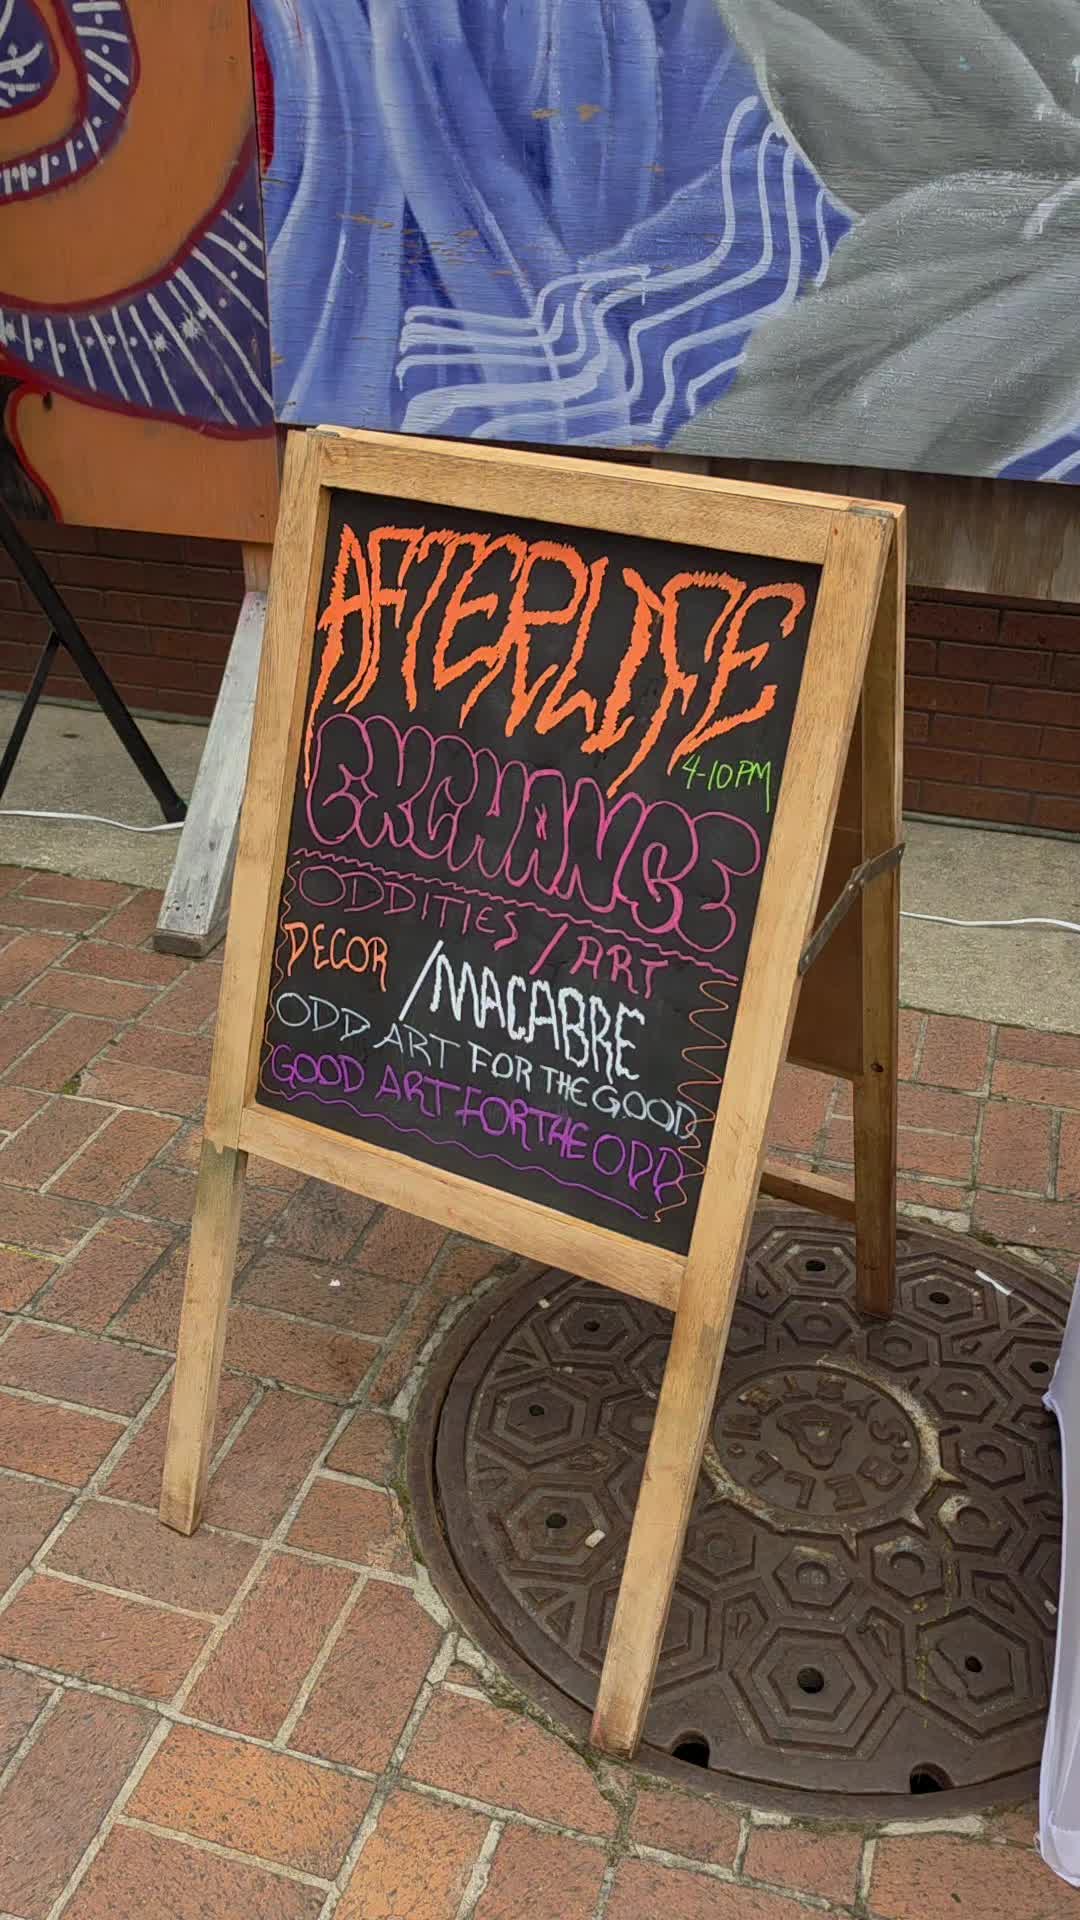 AFTERLIFE
4-10PM
EXCHANGE
ODDITIES / ART
DECOR /MACABRE
ODD ART FOR THE GOOD
GOOD ART FOR THE ODD
BELL SYSTEM